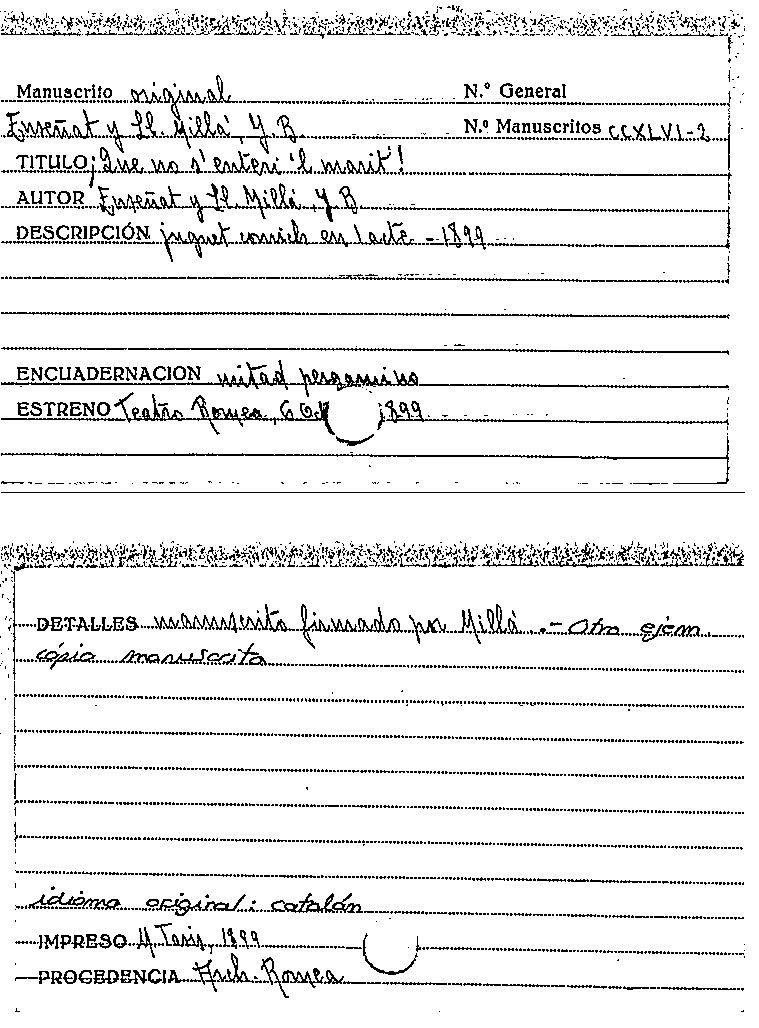 Manuscrito original N.º General
Enseñat y Ll. Millá, J. B. N.º Manuscritos CCXLVI-2
TITULO ¡Que no s'enteri 'l marit!
AUTOR Enseñat y Ll. Millá, J. B.
DESCRIPCIÓN juguet comich en 1 acte - 1899
ENCUADERNACION mitad pergamino
ESTRENO Teatro Romea, 6 1899
DETALLES manuscrito firmado por Millá .- Otro ejem.
cópia manuscrita
idioma original: catalán
IMPRESO M. Taxis, 1899
PROCEDENCIA Arch. Romea